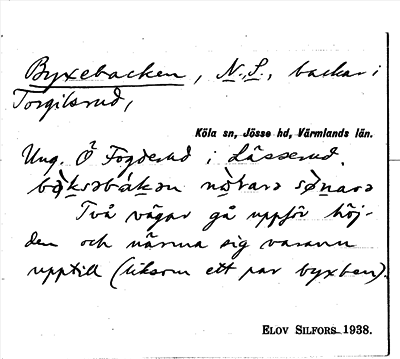 Byxebacken, N. S., backar i
Torgilsrud,
Köla sn, Jösse hd, Värmlands län.
Ung. Ö Fogderud i Lässerud.
Två vägar gå uppför höj-
den och närma sig varann
upptill (liksom ett par byxben).
ELOV SILFORS 1938.